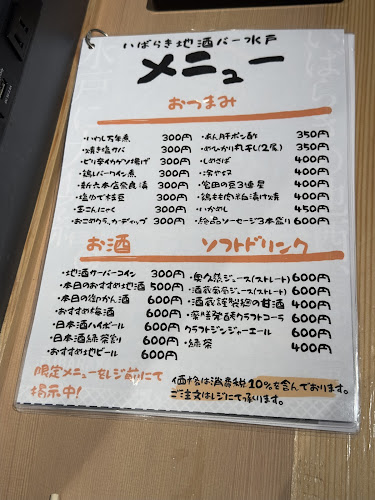 いばらき地酒バー水戸
メニュー
おつまみ
・いわし万年煮 300円
・焼き塩サバ 300円
・ピリ辛イカゲソ揚げ 300円
・鶏レバーワイン煮 300円
・新六本店奈良漬 300円
・塩ゆで枝豆 300円
・玉こんにゃく 300円
・おこめクラッカーディップ 300円
・あん肝ポン酢 350円
・めひかり丸干し(2尾) 350円
・しめさば 400円
・冷やヤッコ 400円
・宮田の豆3連星 400円
・鶏もも肉半身山椒焼 400円
・いかめし 450円
・絶品ソーセージ3本盛り 600円
お酒
・地酒サーバーコイン 300円
・本日のおすすめ地酒 500円
・本日の街かん酒 600円
・おすすめ梅酒 600円
・日本酒ハイボール 600円
・日本酒緑茶割 600円
・おすすめ地ビール 600円
ソフトドリンク
・奥久慈ジュース(ストレート) 600円
・酒蔵葡萄ジュース(ストレート) 600円
・酒蔵謹製糀の甘酒 400円
・家咲発酵クラフトコーラ 600円
クラフトジンジャーエール 600円
・緑茶 400円
限定メニューをレジ前にて
掲示中!
価格は消費税10%を含んでおります。
ご注文はレジにて承ります。